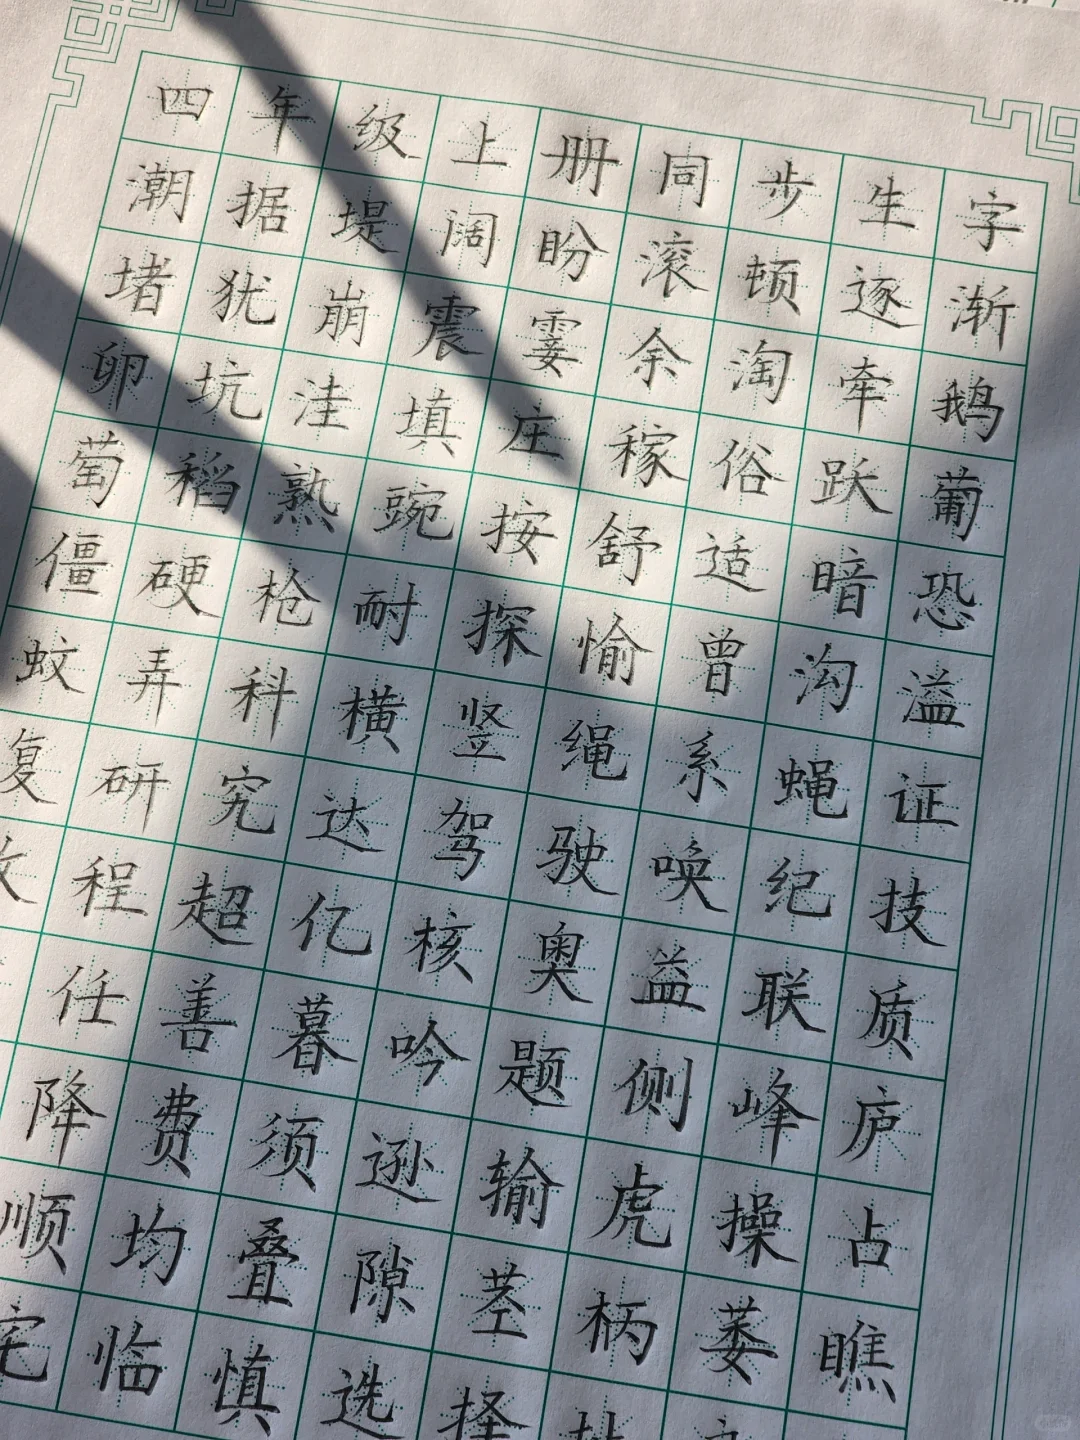 四年级上册同步生字
潮据堤阔盼滚顿逐渐
堵犹崩震霎余淘牵鹅
卵坑洼填庄稼俗跃葡
萄稻熟豌按舒适暗恐
僵硬枪耐探愉曾沟溢
蚊弄科横竖绳系蝇证
复研究达驾驶唤纪技
程超亿核奥益联质
任善暮吟题侧峰庐
降费须逊输虎操占
顺均叠隙茎柄萎瞧
宅临慎选择